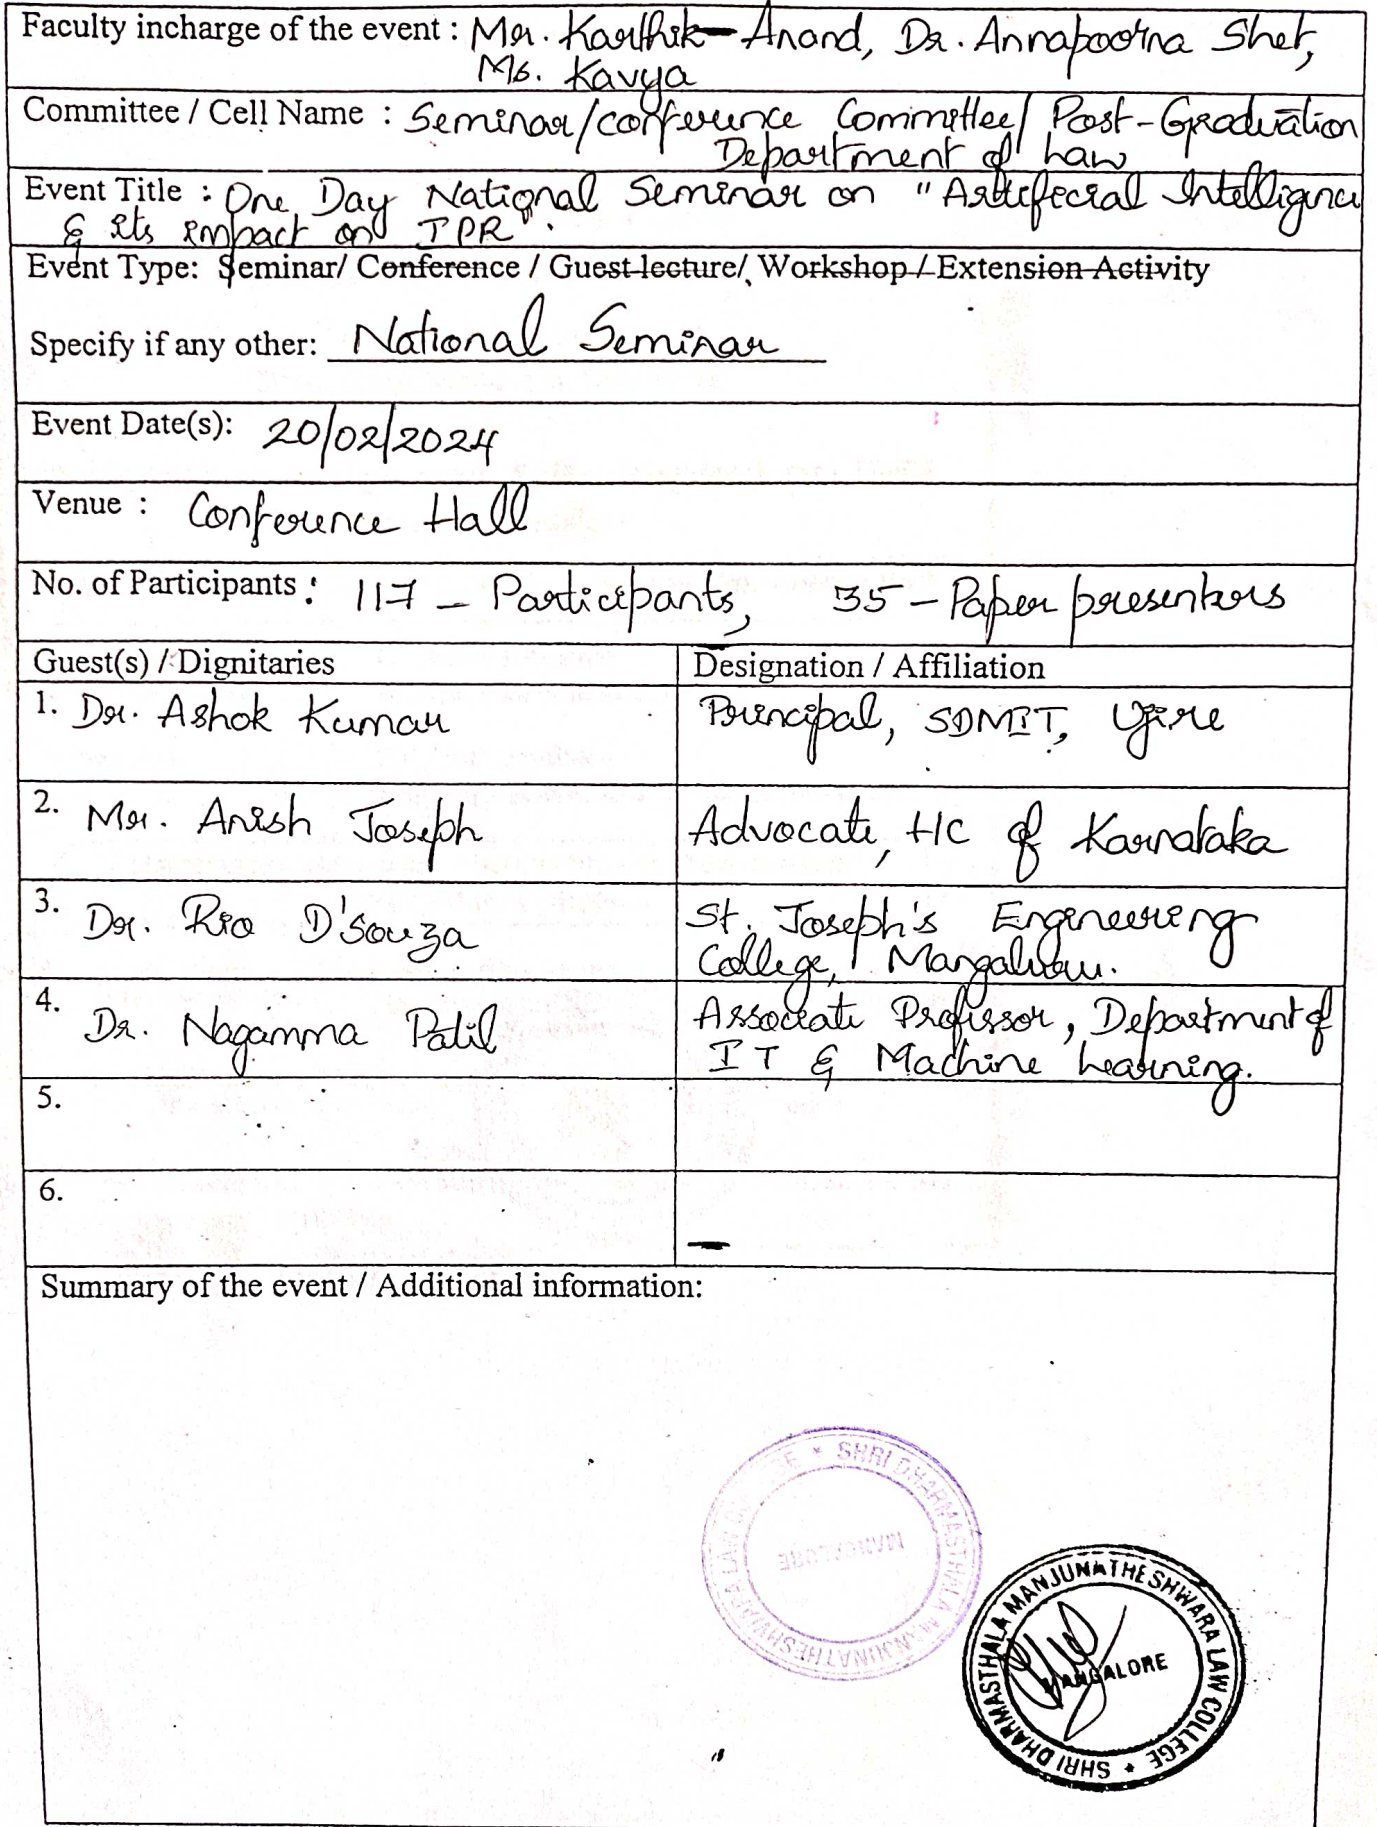 Faculty incharge of the event : Mr. Karthik Anand, Dr. Annapoorna Shet,
Ms. Kavya
Committee / Cell Name : Seminar/conference Committee/ Post-Graduation
Department of Law
Event Title : One Day National Seminar on "Artificial Intelligence
& its impact on IPR".
Event Type: Seminar/ Conference / Guest lecture/ Workshop / Extension Activity
Specify if any other: National Seminar
Event Date(s): 20/02/2024
Venue : Conference Hall
No. of Participants : 117 – Participants, 35 – Paper presenters
Guest(s) / Dignitaries Designation / Affiliation
1. Dr. Ashok Kumar Principal, SDMIT, Ujire
2. Mr. Anish Joseph Advocate, HC of Karnataka
3. Dr. Rio D'souza St. Joseph's Engineering
College, Mangaluru.
4. Dr. Nagamma Patil Associate Professor, Department of
IT & Machine Learning.
5.
6.
Summary of the event / Additional information:
* SHRI DHARMASTHALA MANJUNATHESHWARA LAW
MANGALORE
SHRI DHARMASTHALA MANJUNATHESHWARA LAW COLLEGE *
MANGALORE